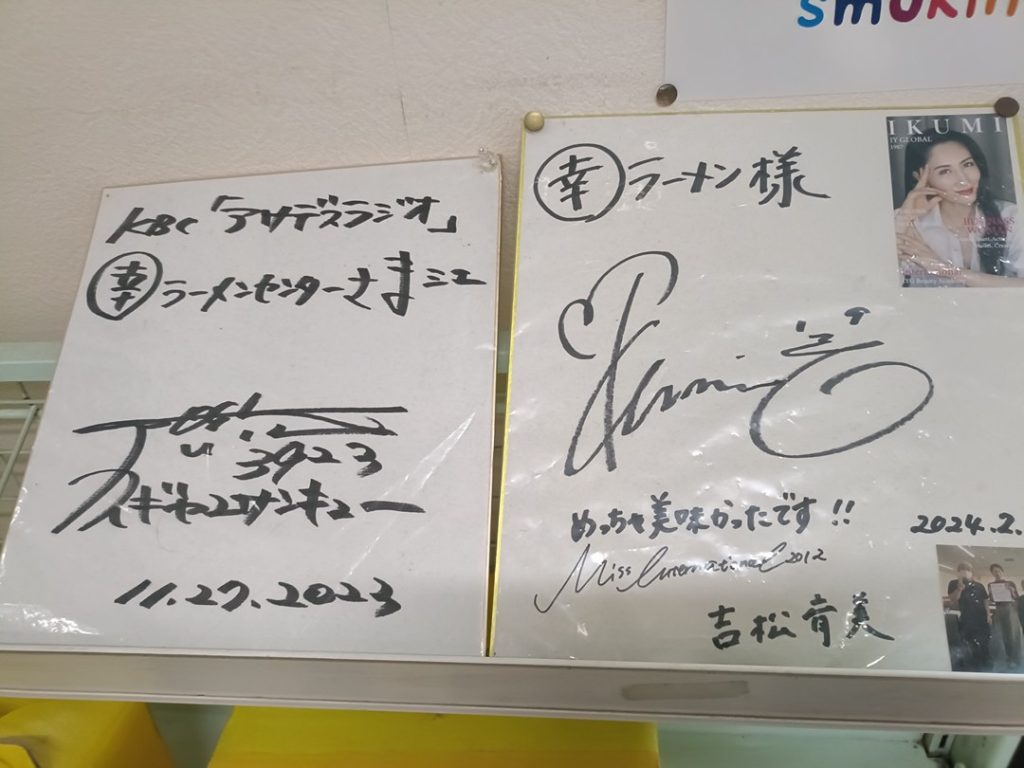 smokin
KBC「アサデスラジオ」
幸ラーメンセンターさま江
3923
ライギョサンキュー
11.27.2023
幸ラーメン様
Ikumi
めっちゃ美味かったです!!
2024.2.
Miss International 2012
吉松育美
IKUMI
IY GLOBAL